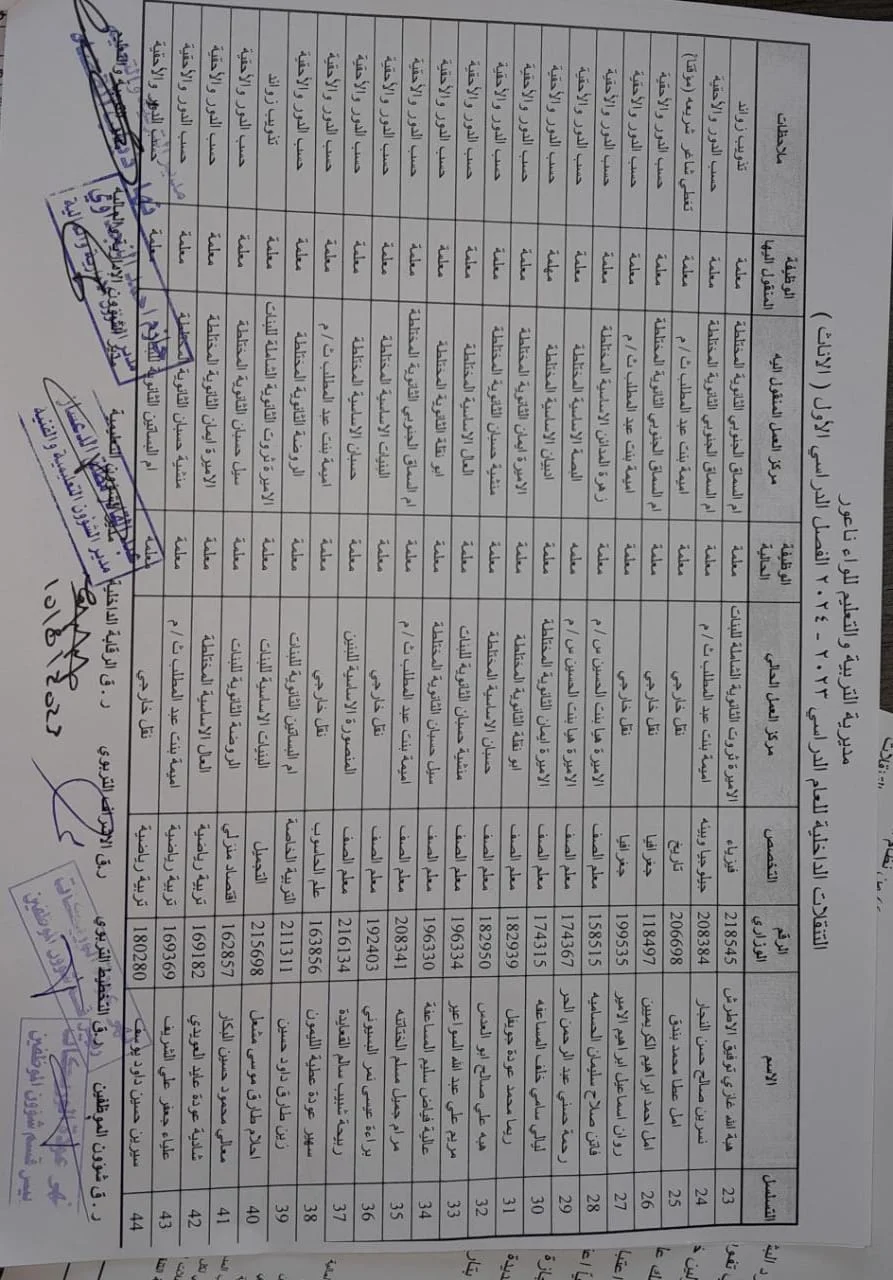 مديرية التربية والتعليم للواء ناعور
التنقلات الداخلية للعام الدراسي ٢٠٢٣ - ٢٠٢٤ الفصل الدراسي الأول ( الاناث )
التسلسل الاسم الرقم الوزاري التخصص مركز العمل الحالي الوظيفة الحالية مركز العمل المنقول اليه الوظيفة المنقول اليها ملاحظات
23 هبة الله غازي توفيق الاطرش 218545 فيزياء الاميرة ثروت الثانوية الشاملة للبنات معلمة ام السماق الجنوبي الثانوية المختلطة معلمة تذويب زوائد
24 نسرين صالح حسن النجار 208384 جيولوجيا وبيئه اميمة بنت عبد المطلب ث / م معلمة ام السماق الجنوبي الثانوية المختلطة معلمة حسب الدور والأحقية
25 امل عطا محمد بندق 206698 تاريخ نقل خارجي معلمة اميمة بنت عبد المطلب ث / م معلمة تغطي شاغر شريعه (مؤقتا)
26 امل احمد ابراهيم الكريميين 118497 جغرافيا نقل خارجي معلمة ام السماق الجنوبي الثانوية المختلطة معلمة حسب الدور والأحقية
27 روان اسماعيل ابراهيم الامير 199535 جغرافيا نقل خارجي معلمة اميمة بنت عبد المطلب ث / م معلمة حسب الدور والأحقية
28 فاتن صلاح سليمان الحساميه 158515 معلم الصف الاميرة هيا بنت الحسين س / م معلمة زهرة المدائن الاساسية المختلطة معلمة حسب الدور والأحقية
29 رحمة حسني عبد الرحمن الحر 174367 معلم الصف الاميرة هيا بنت الحسين س / م معلمه البصة الاساسية المختلطة معلمة حسب الدور والأحقية
30 ليالي سامي خلف المساعفه 174315 معلم الصف الاميرة ايمان الثانوية المختلطة معلمة ادبيان الاساسية المختلطة مهلمة حسب الدور والأحقية
31 ريما محمد عودة جويفل 182939 معلم الصف ابو نقلة الثانوية المختلطة معلمة الاميرة ايمان الثانوية المختلطة معلمة حسب الدور والأحقية
32 هبه علي صالح ابو العدس 182950 معلم الصف حسبان الاساسية المختلطة معلمة منشية حسبان الثانوية المختلطة معلمة حسب الدور والأحقية
33 مريم علي عبد الله السواعير 196334 معلم الصف منشية حسبان الثانوية للبنات معلمة العال الاساسية المختلطة معلمة حسب الدور والأحقية
34 عالية فياض سليم المساعفة 196330 معلم الصف سيل حسبان الثانوية المختلطة معلمة ابو نقلة الثانوية المختلطة معلمة حسب الدور والأحقية
35 مرام جميل مسلم الختاتنه 208341 معلم الصف اميمة بنت عبد المطلب ث / م معلمة ام السماق الجنوبي الثانوية المختلطة معلمة حسب الدور والأحقية
36 براءة عيسى نمر البسيوني 192403 معلم الصف نقل خارجي معلمة البنيات الاساسية المختلطة معلمة حسب الدور والأحقية
37 ربيحة شبيب سالم القعايدة 216134 معلم الصف المنصورة الاساسية للبنين معلمة حسبان الاساسية المختلطة معلمة حسب الدور والأحقية
38 سهير عودة عطية الليمون 163856 علم الحاسوب نقل خارجي معلمة اميمة بنت عبد المطلب ث / م معلمة حسب الدور والأحقية
39 زين طارق داود حسين 211311 التربية الخاصة ام البساتين الثانوية للبنات معلمة الروضة الثانوية المختلطة معلمة حسب الدور والأحقية
40 احلام طارق موسى مشعل 215698 التجميل البنيات الاساسية للبنات معلمة الاميرة ثروت الثانوية الشاملة للبنات معلمة تذويب زوائد
41 معالي محمود حسين البكار 162857 اقتصاد منزلي الروضة الثانوية للبنات معلمة سيل حسبان الثانوية المختلطة معلمة حسب الدور والأحقية
42 شادية عودة عايد العويدي 169182 تربية رياضية العال الاساسية المختلطة معلمة الاميرة ايمان الثانوية المختلطة معلمة حسب الدور والأحقية
43 علياء جعفر علي الشريف 169369 تربية رياضية اميمة بنت عبد المطلب ث / م معلمة منشية حسبان الثانوية المختلطة معلمة حسب الدور والأحقية
44 سيرين حسين داود يوسف 180280 تربية رياضية نقل خارجي معلمة ام البساتين الثانوية معلمة حسب الدور والأحقية
ر . ق شؤون الموظفين ر.ق التخطيط التربوي ر.ق الاشراف التربوي ر . ق الرقابة الداخلية مدير الشؤون التعليمية مدير الشؤون الادارية والمالية
مدير الشؤون التعليمية والفنية
١٥/٨/٢٠٢٣